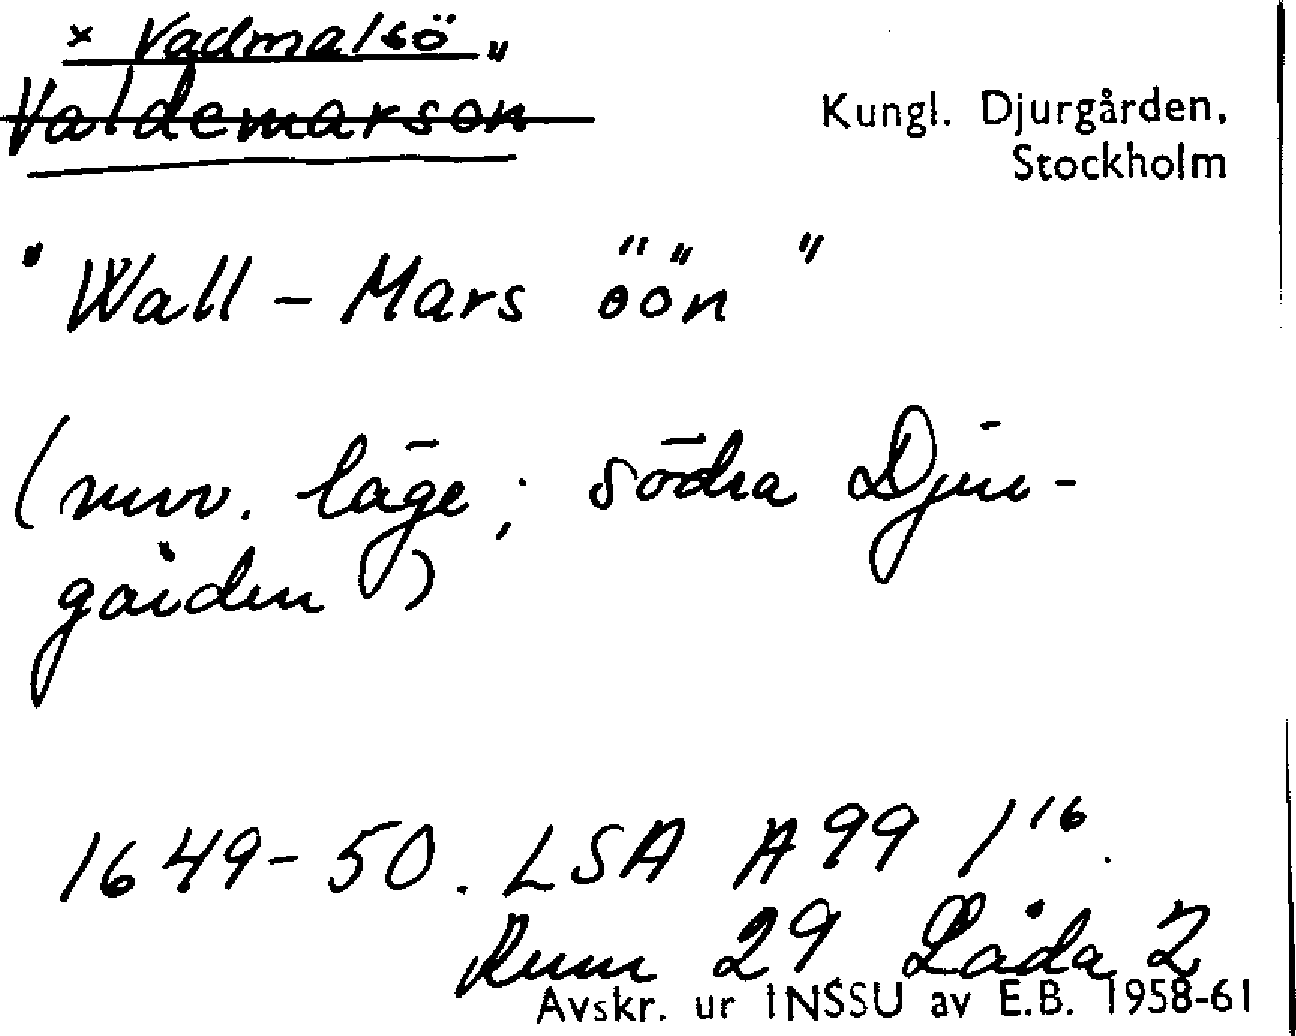 × Vadmalsö "
Valdemarson
Kungl. Djurgården,
Stockholm
" Wall - Mars öön "
(nuv. läge; södra Djur-
gården)
1649-50. LSA A 99 1 16.
Rum 29 Låda 2
Avskr. ur INSSU av E.B. 1958-61